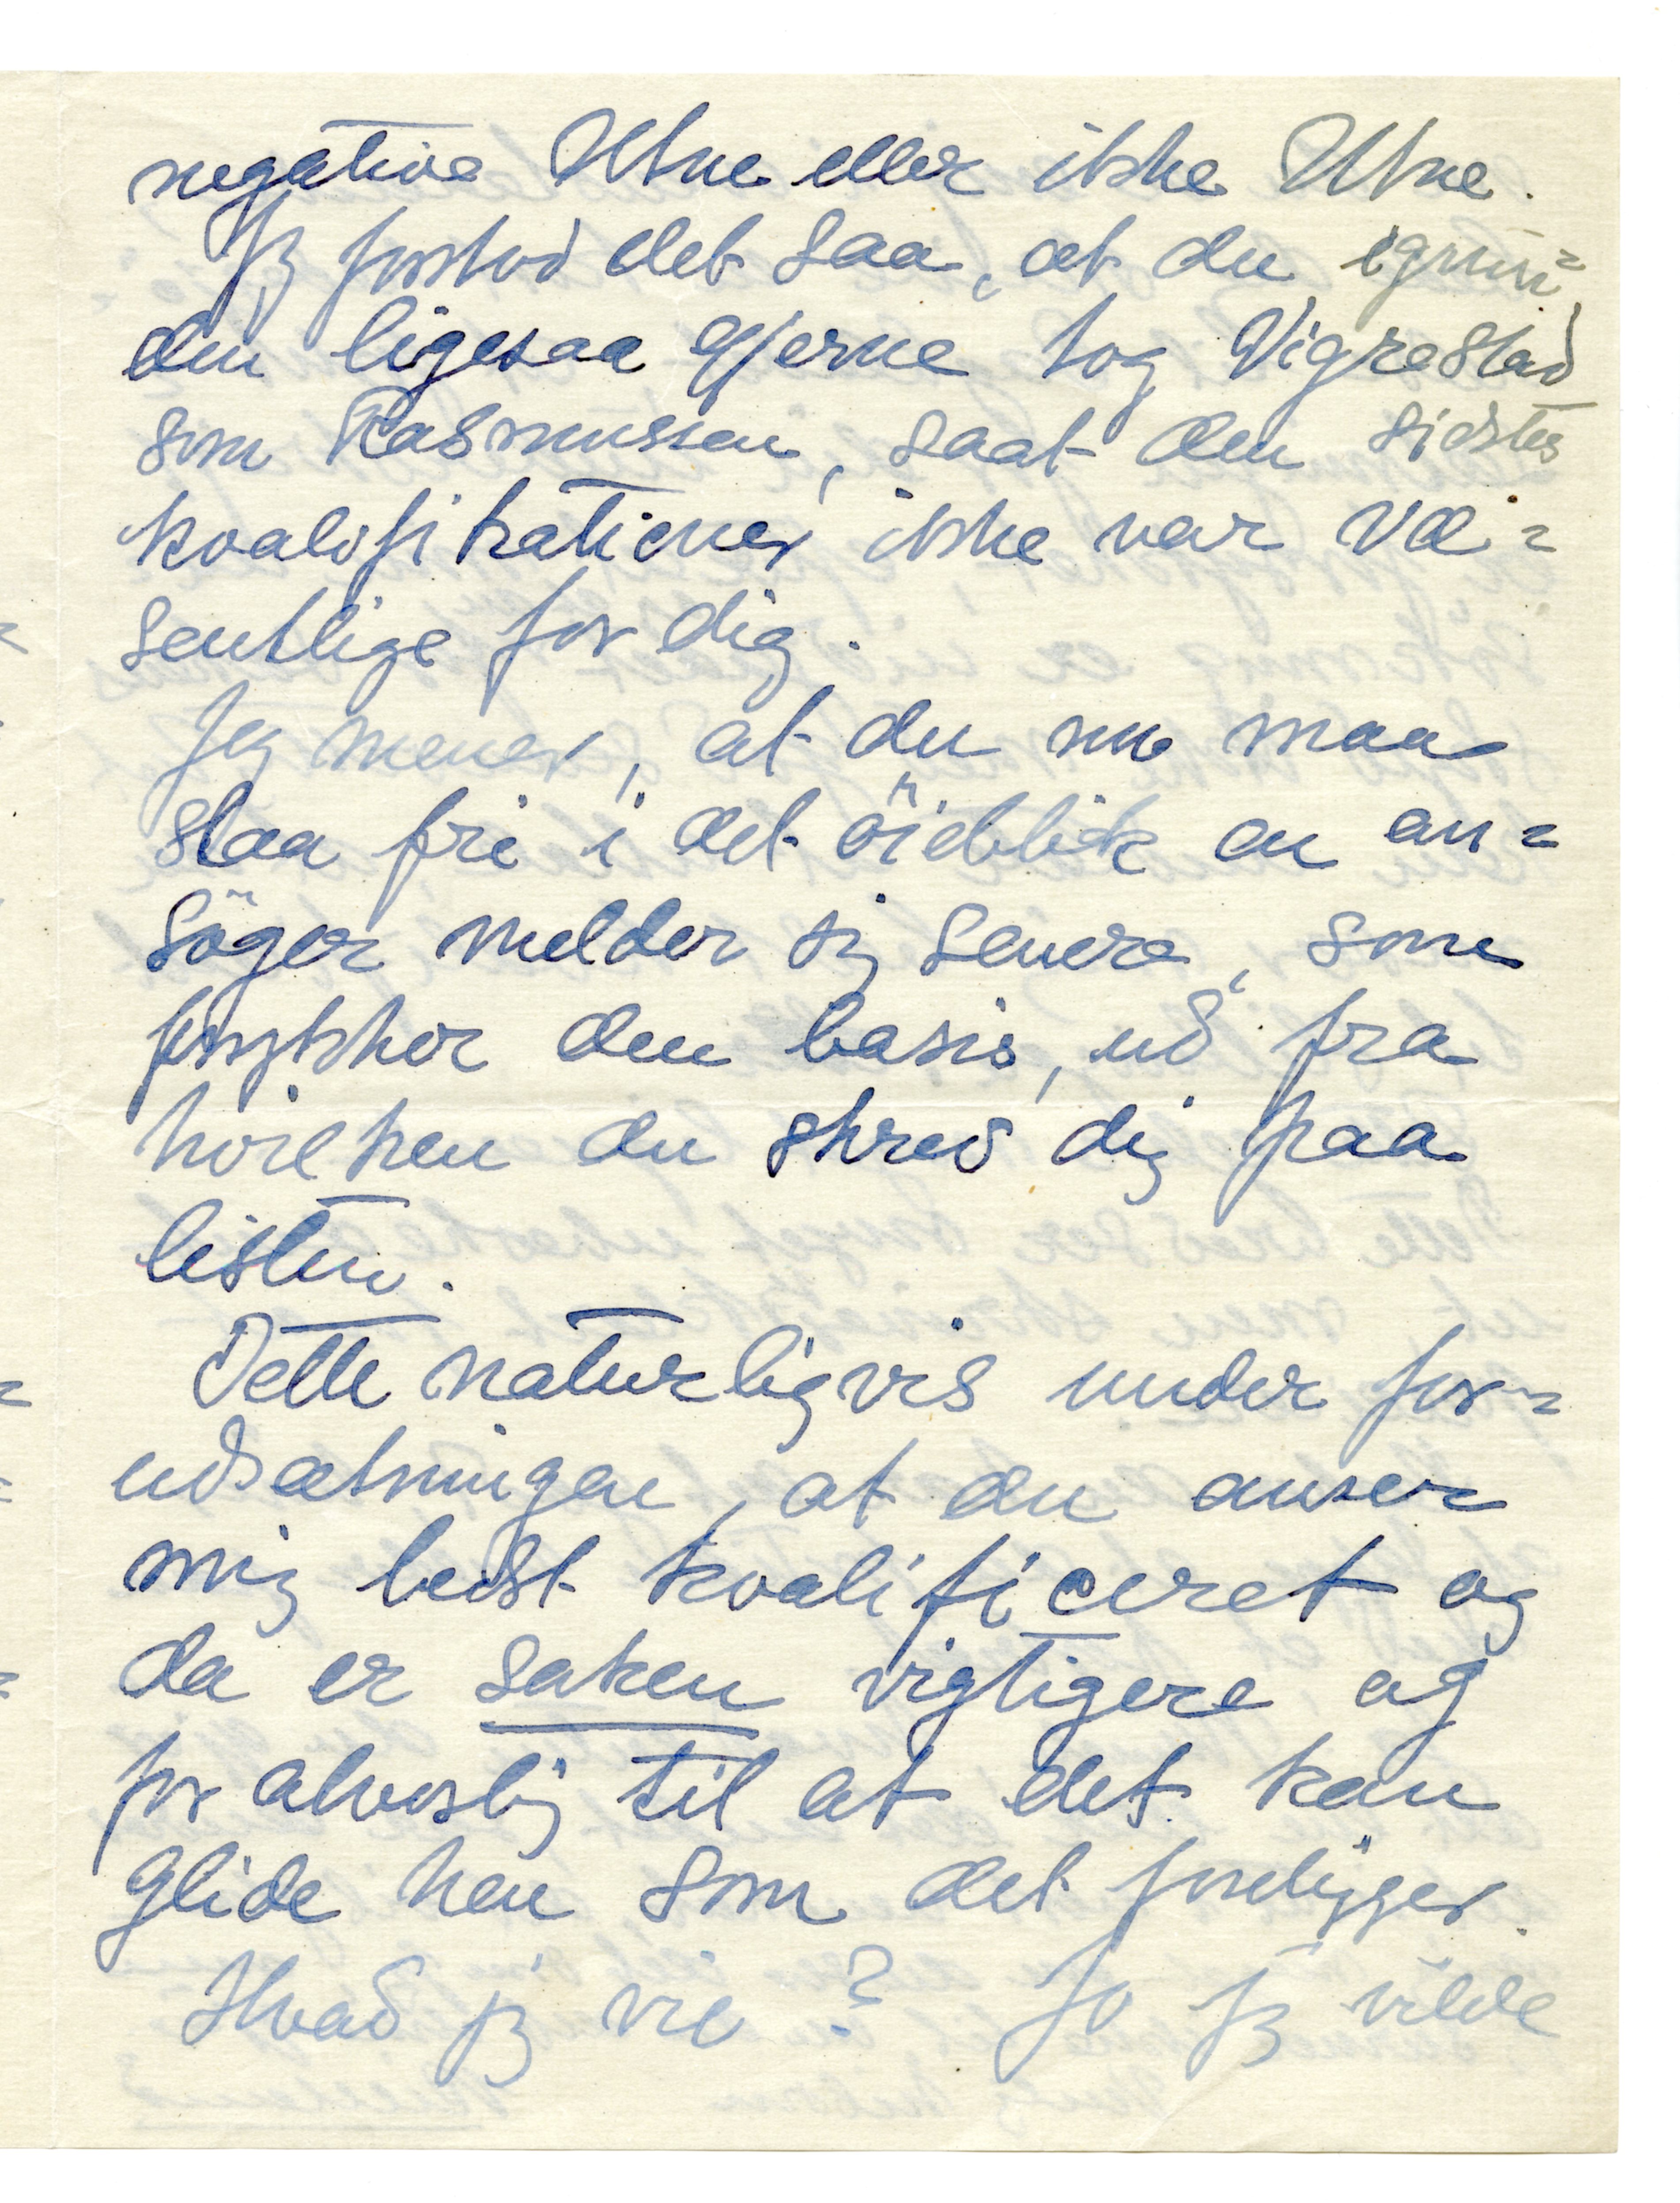 negative Utne eller ikke Utne.
Jeg forstod det saa, at du igrun=
den ligesaa gjerne tog Vigrestad
som Rasmussen, saat den sidstes
kvalifikationer ikke var væ=
sentlige for dig.
Jeg mener, at du nu maa
staa fri i det öieblik en an=
söger melder sig senere, som
forrykker den basis, ud fra
hvilken du skrev dig paa
listen.
Dette naturligvis under for=
udsætningen, at du anser
mig bedst kvalificeret og
da er saken vigtigere og
for alvorlig til at det kan
glide hen som det foreligger.
Hvad jeg vil? Jo jeg vilde